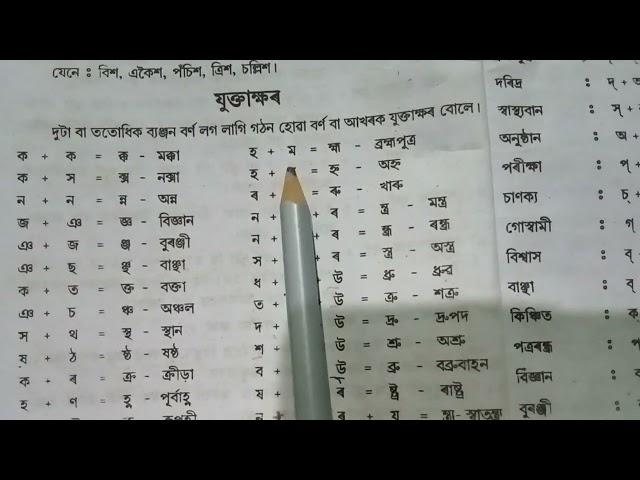 যেনে : বিশ, একৈশ, পঁচিশ, ত্ৰিশ, চল্লিশ।
যুক্তাক্ষৰ
দুটা বা ততোধিক ব্যঞ্জন বৰ্ণ লগ লাগি গঠন হোৱা বৰ্ণ বা আখৰক যুক্তাক্ষৰ বোলে।
ক + ক = ক্ক - মক্কা
ক + স = ক্স - নক্সা
ন + ন = ন্ন - অন্ন
জ + ঞ = জ্ঞ - বিজ্ঞান
ঞ + জ = ঞ্জ - বুৰঞ্জী
ঞ + ছ = ঞ্ছ - বাঞ্ছা
ক + ত = ক্ত - বক্তা
ঞ + চ = ঞ্চ - অঞ্চল
স + থ = স্থ - স্থান
ষ + ঠ = ষ্ঠ - ষষ্ঠ
ক + ৰ = ক্ৰ - ক্ৰীড়া
হ + ণ = হ্ণ - পূৰ্বাহ্ণ
হ + ম = হ্ম - ব্ৰহ্মপুত্ৰ
হ + = হ্ন - অহ্ন
ৰ = - খাৰু
ন + + ৰ = ন্ত্ৰ - মন্ত্ৰ
ন + + ৰ = ন্ধ্ৰ - ৰন্ধ্ৰ
স + + ৰ = স্ত্ৰ - অস্ত্ৰ
ধ + + উ = ধ্ৰু - ধ্ৰুৱ
ত + + উ = ত্ৰু - শত্ৰু
দ + + উ = দ্ৰু - দ্ৰুপদ
শ + + উ = শ্ৰু - অশ্ৰু
ব + + উ = ব্ৰু - বব্ৰুবাহন
ষ + + ৰ = ষ্ট্ৰ - ৰাষ্ট্ৰ
ন + ৰ + য =
দৰিদ্ৰ : দ্ +
স্বাস্থ্যবান : স্ +
অনুষ্ঠান : অ +
পৰীক্ষা : প্ +
চাণক্য : চ্ +
গোস্বামী : গ্
বিশ্বাস : ব্
বাঞ্ছা : ব্
কিঞ্চিত : ক্
পত্ৰৰন্ধ্ৰ : প
বিজ্ঞান : ব
বুৰঞ্জী :